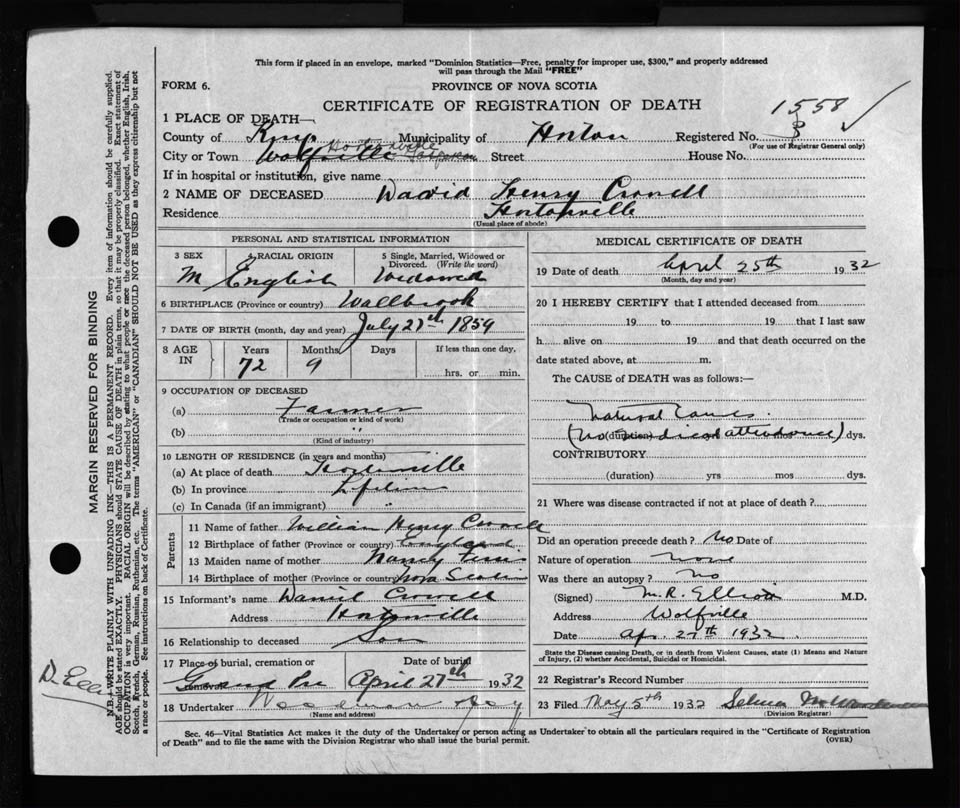 This form if placed in an envelope, marked "Dominion Statistics—Free, penalty for improper use, $300," and properly addressed
will pass through the Mail "FREE"
FORM 6.
PROVINCE OF NOVA SCOTIA
CERTIFICATE OF REGISTRATION OF DEATH
1558 ✓
1 PLACE OF DEATH—
County of Kings Municipality of Horton Registered No. 3
(For use of Registrar General only)
City or Town Wolfville Hortonville Street House No.
If in hospital or institution, give name
2 NAME OF DECEASED David Henry Crowell
Residence Hortonville
(Usual place of abode)
PERSONAL AND STATISTICAL INFORMATION
3 SEX 4 RACIAL ORIGIN 5 Single, Married, Widowed or Divorced. (Write the word)
M English Widowed
6 BIRTHPLACE (Province or country) Wallbrook
7 DATE OF BIRTH (month, day and year) July 27th 1859
8 AGE IN Years Months Days If less than one day,
72 9 hrs. or min.
9 OCCUPATION OF DECEASED
(a) Farmer
(Trade or occupation or kind of work)
(b) "
(Kind of industry)
10 LENGTH OF RESIDENCE (in years and months)
(a) At place of death Hortonville
(b) In province Lifetime
(c) In Canada (if an immigrant) "
Parents
11 Name of father William Henry Crowell
12 Birthplace of father (Province or country) England
13 Maiden name of mother Nancy
14 Birthplace of mother (Province or country) Nova Scotia
15 Informant's name Daniel Crowell
Address Hortonville
16 Relationship to deceased Son
17 Place of burial, cremation or removal Date of burial
Grand Pre April 27th 1932
18 Undertaker Woodman
(Name and address)
MEDICAL CERTIFICATE OF DEATH
19 Date of death April 25th 1932
(Month, day and year)
20 I HEREBY CERTIFY that I attended deceased from
19 to 19 that I last saw
h alive on 19 and that death occurred on the
date stated above, at m.
The CAUSE of DEATH was as follows:—
Natural Causes.
(No medical attendance) (duration) dys.
CONTRIBUTORY
(duration) yrs mos dys.
21 Where was disease contracted if not at place of death?
Did an operation precede death? No Date of
Nature of operation none
Was there an autopsy? No
(Signed) M. R. Elliott M.D.
Address Wolfville
Date Apr. 27th 1932.
State the Disease causing Death, or in death from Violent Causes, state (1) Means and Nature
of Injury, (2) whether Accidental, Suicidal or Homicidal.
22 Registrar's Record Number
23 Filed May 5th 1932 Selma
(Division Registrar)
Sec. 46—Vital Statistics Act makes it the duty of the Undertaker or person acting as Undertaker to obtain all the particulars required in the "Certificate of Registration
of Death" and to file the same with the Division Registrar who shall issue the burial permit.
(OVER)
MARGIN RESERVED FOR BINDING
N.B.—WRITE PLAINLY WITH UNFADING INK—THIS IS A PERMANENT RECORD. Every item of information should be carefully supplied.
AGE should be stated EXACTLY. PHYSICIANS should STATE CAUSE OF DEATH in plain terms, so that it may be properly classified. Exact statement of
OCCUPATION is very important. RACIAL ORIGIN will be described by stating to what people or race the deceased person belonged, whether English, Irish,
Scotch, French, German, Russian, Ruthenian, etc. The terms "AMERICAN" or "CANADIAN" SHOULD NOT BE USED as they express citizenship but not
a race or people. See instructions on back of Certificate.